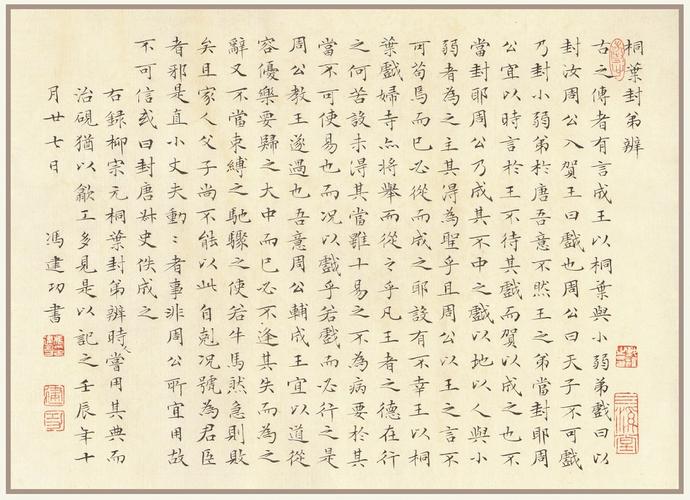 桐葉封弟辨
古之傳者有言成王以桐葉與小弱弟戲曰以
封汝周公入賀王曰戲也周公曰天子不可戲
乃封小弱弟於唐吾意不然王之弟當封耶周
公宜以時言於王不待其戲而賀以成之也不
當封耶周公乃成其不中之戲以地以人與小
弱者為之主其得為聖乎且周公以王之言不
可苟焉而已必從而成之耶設有不幸王以桐
葉戲婦寺亦將舉而從之乎凡王者之德在行
之何若設未得其當雖十易之不為病要於其
當不可使易也而況以戲乎若戲而必行之是
周公教王遂過也吾意周公輔成王宜以道從
容優樂要歸之大中而已必不逢其失而為之
辭又不當束縛之馳驟之使若牛馬然急則敗
矣且家人父子尚不能以此自剋況號為君臣
者邪是直小丈夫動〻者事非周公所宜用故
不可信或曰封唐叔史佚成之
右錄柳宗元桐葉封弟辨時嘗用其典而
治硯猶以歙工多見是以記之壬辰年十
月廿七日 馮建功書